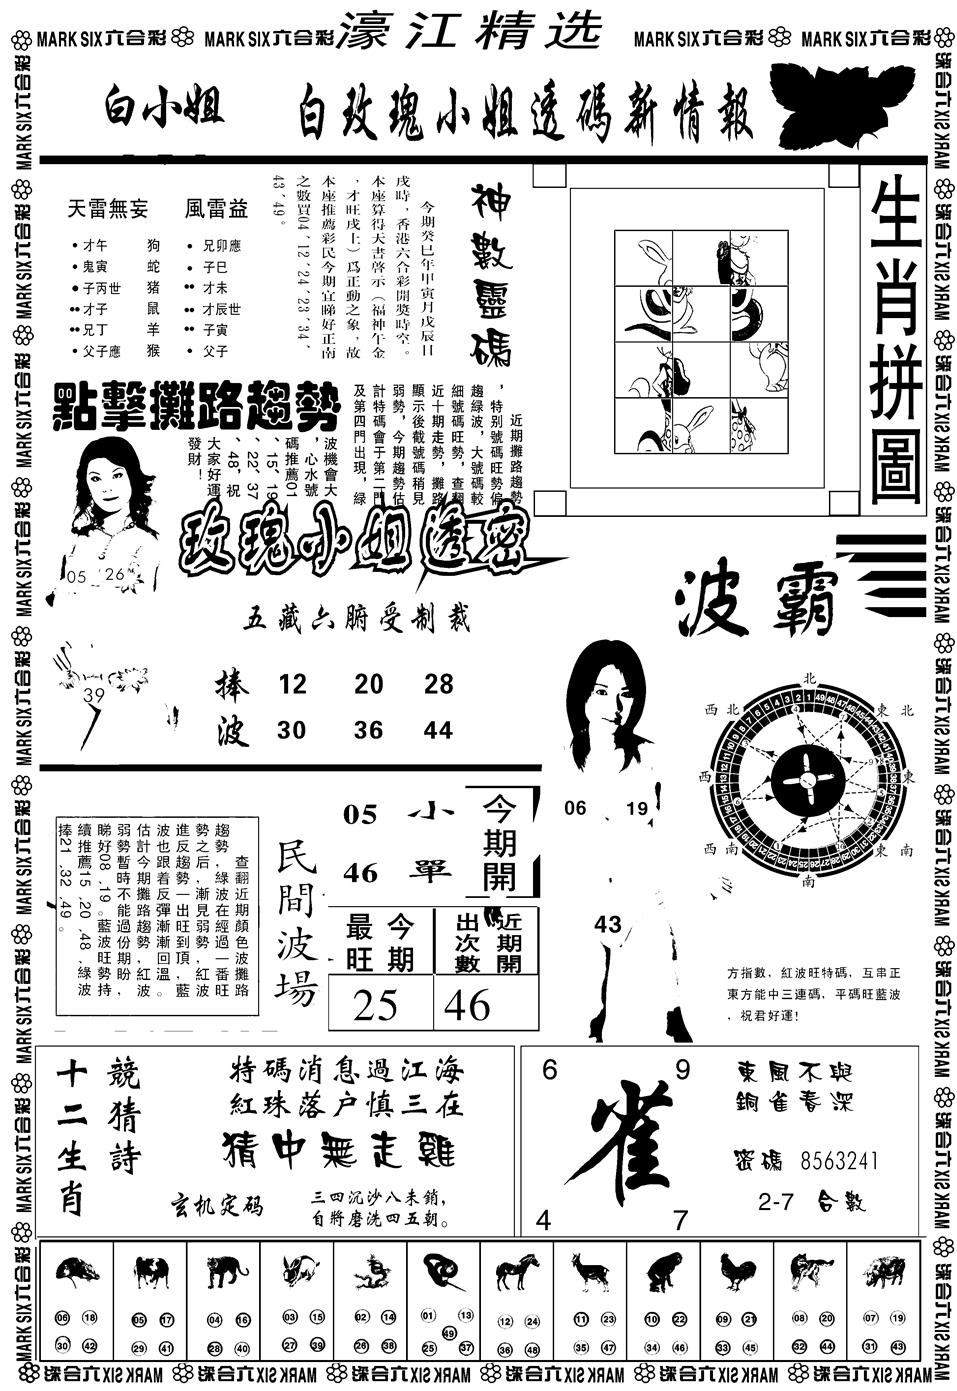 濠江精选
MARK SIX六合彩 MARK SIX六合彩 MARK SIX六合彩 MARK SIX六合彩
白小姐 白玫瑰小姐透碼新情報
天雷無妄 風雷益
才午 狗 兄卯應
鬼寅 蛇 子巳
子丙世 猪 才未
才子 鼠 才辰世
兄丁 羊 子寅
父子應 猴 父子
神數靈碼
今期癸巳年甲寅月戊辰日
戌時，香港六合彩開獎時空。
本座算得天書啓示（福神午金
，才旺戌上）爲正動之象，故
本座推薦彩民今期宜睇好正南
之數買04、12、24、23、34、
43、49。
生肖拼圖
點擊攤路趨勢
近期攤路趨勢
，特别號碼旺勢偏
趨綠波，大號碼較
細號碼旺勢，查翻
近十期走勢，攤路
顯示後截號碼稍見
弱勢，今期趨勢估
計特碼會于第二門
及第四門出現，綠
波機會大
，心水號
碼推薦01
、15、19
、22、37
、48，祝
大家好運
發財！
05 26
39
玫瑰小姐透密
五藏六腑受制裁
捧 12 20 28
波 30 36 44
波霸
06 19
43
北
西北 東北
西 東
西南 東南
南
方指數，紅波旺特碼，互串正
東方能中三連碼，平碼旺藍波
，祝君好運！
查翻近期顏色波攤路
趨勢，綠波在經過一番旺
勢之后，漸見弱勢，紅波
進反趨勢一出旺到頂，藍
波也跟着反彈漸漸回溫。
估計今期攤路趨勢，紅波
弱勢暫時不能過份期盼，
睇好08、19。藍波旺勢持
續推薦15、20、48，綠波
捧21、32、49。
民間波場
05 小 今期開
46 單
今期最旺 近期開出次數
25 46
十二生肖
競猜詩
特碼消息過江海
紅珠落户慎三在
猜中無走雞
玄机定码
三四沉沙八未銷，
自將磨洗四五朝。
6 9
雀
4 7
東風不與
銅雀春深
密碼 8563241
2-7 合數
06 18 05 17 04 16 03 15 02 14 01 13 12 24 11 23 10 22 09 21 08 20 07 19
49
30 42 29 41 28 40 27 39 26 38 25 37 36 48 35 47 34 46 33 45 32 44 31 43
MARK SIX六合彩 MARK SIX六合彩 MARK SIX六合彩 MARK SIX六合彩 MARK SIX六合彩 MARK SIX六合彩